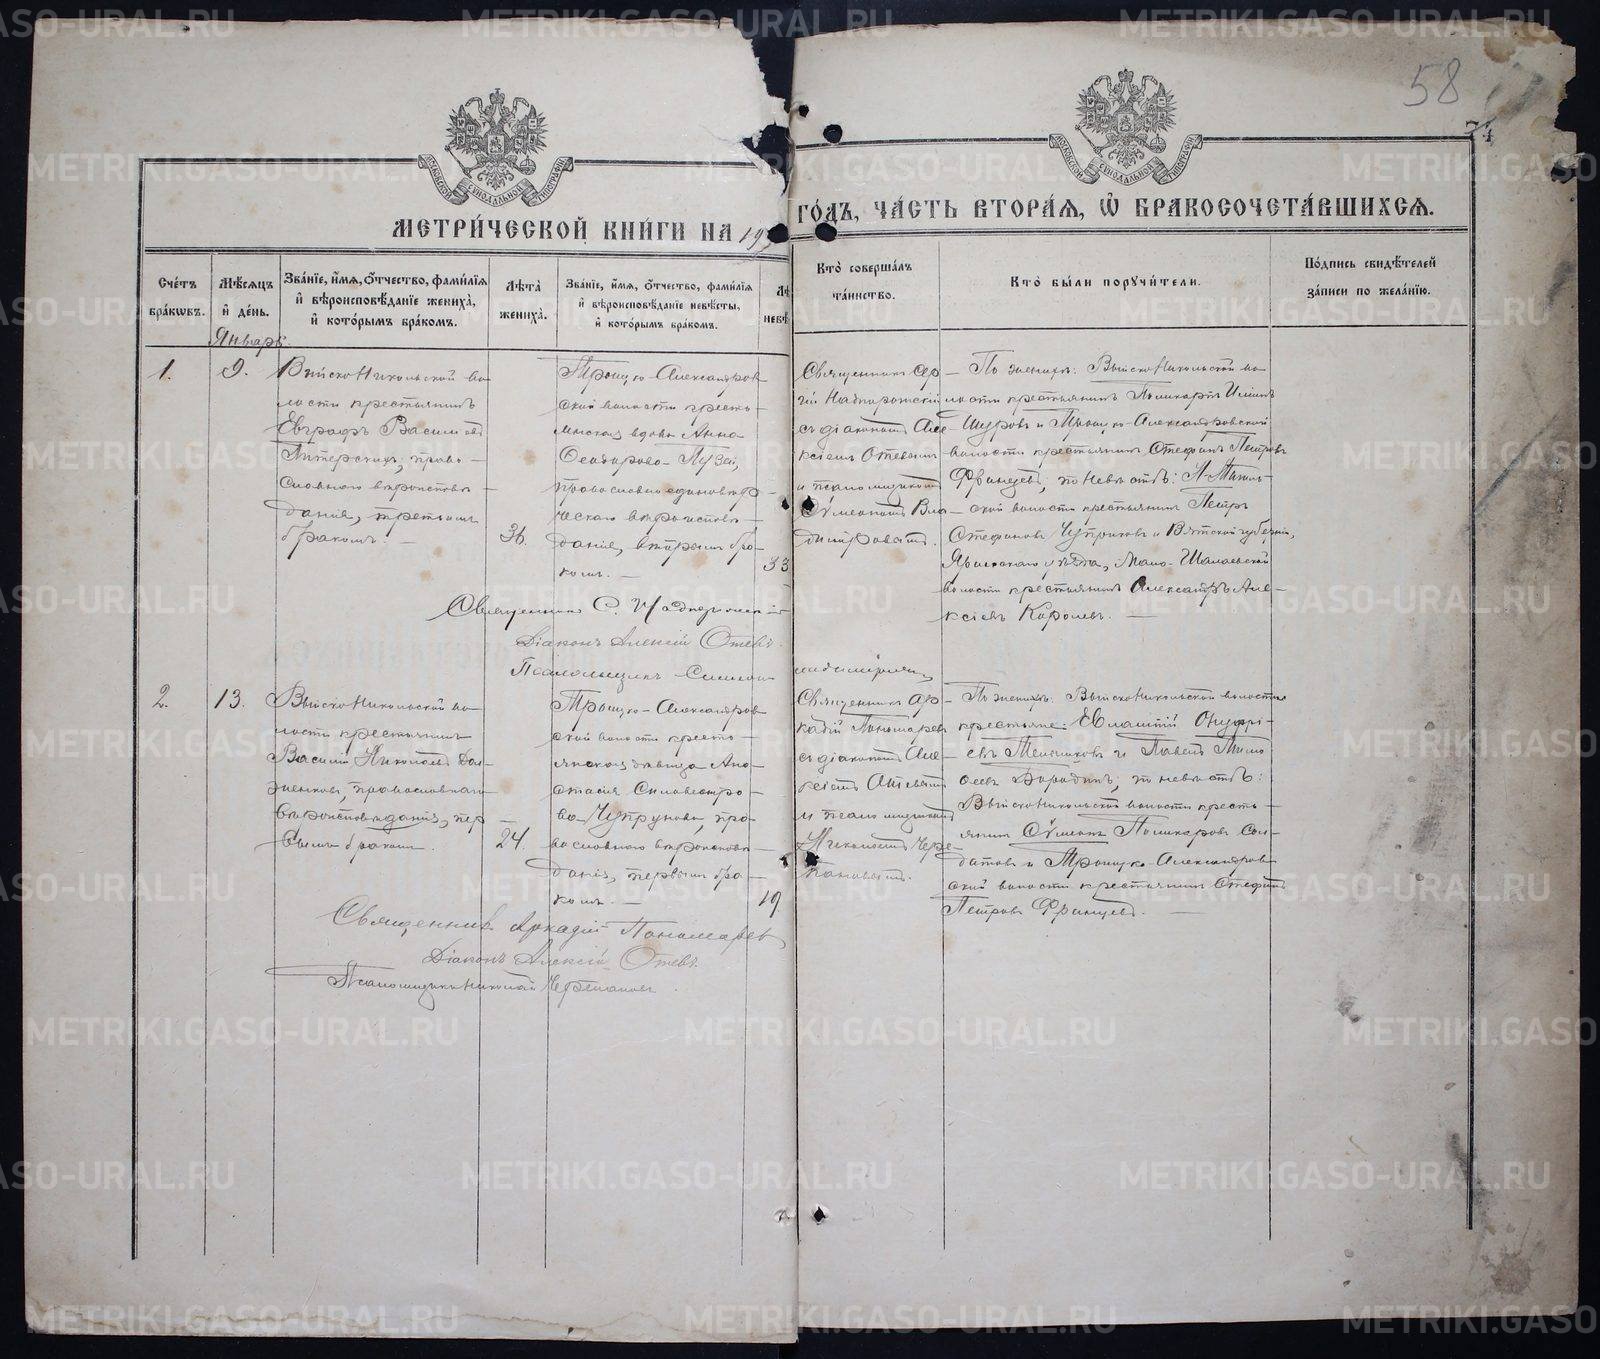 58
МОСКОВСКОЙ СѴНОДАЛЬНОЙ ТИПОГРАФІИ
МОСКОВСКОЙ СѴНОДАЛЬНОЙ ТИПОГРАФІИ
МЕТРИ́ЧЕСКОЙ КНИ́ГИ НА 19
ГО́ДЪ, ЧА́СТЬ ВТОРА́Я, Ѡ҆ БРАКОСОЧЕТА́ВШИХСЯ.
Сче́тъ бра́кѡвъ.
Мѣ́сяцъ и҆ де́нь.
Зва́нїе, и҆́мя, ѻ҆́тчество, фами́лїя и҆ вѣроисповѣ́данїе жениха̀, и҆ кото́рымъ бра́комъ.
Лѣ́та жениха̀.
Зва́нїе, и҆́мя, ѻ҆́тчество, фами́лїя и҆ вѣроисповѣ́данїе невѣ́сты, и҆ кото́рымъ бра́комъ.
Лѣ
невѣ
Кто̀ соверша́лъ та́инство.
Кто̀ бы́ли поручи́тели.
По́дпись свидѣ́телей за́писи по жела́нїю.
Январь.
1.
9.
Выйско Никольской во-
лости крестьянинъ
Евграфъ Василіевъ
Питерскихъ, право-
славнаго вѣроисповѣ-
данія, третьимъ
бракомъ. —
36.
Троицко-Александров-
ской волости кресть-
янская вдова Анна
Ѳеодорова
православно единовѣр-
ческаго вѣроисповѣ-
данія, вторымъ бра-
комъ. —
33
Священникъ
гій Надпорожскій
съ діакономъ Але-
ксіемъ Отевымъ
и псаломщикомъ
Сѵмеономъ Вла-
диміровымъ.
— По женихѣ: Выйско Никольской во-
лости крестьянинъ
и Троицко-Александровской
волости крестьянинъ Стефанъ Петровъ
Францевъ, по невѣстѣ: Н-Тагиль-
ской волости крестьянинъ Петръ
Стефановъ Чупруновъ и Вятской губерніи,
Яранскаго уѣзда, Мало-Шалаевской
волости крестьянинъ Александръ Але-
ксіевъ Королевъ. —
Священникъ С. Надпорожскій
Діаконъ Алексій Отевъ.
Псаломщикъ Симеонъ
Владиміровъ
2.
13.
Выйско Никольской во-
лости крестьянинъ
Василій Николаевъ Дол-
женковъ, православнаго
вѣроисповѣданія, пер-
вымъ бракомъ.
24.
Троицко-Александров-
ской волости кресть-
янская дѣвица Ана-
стасія Сильвестро-
ва Чупрунова, пра-
вославнаго вѣроисповѣ-
данія, первымъ бра-
комъ. —
19.
Священникъ Ар-
кадій Пономаревъ
съ діакономъ Але-
ксіемъ Отевымъ
и псаломщикомъ
Николаемъ Чере-
пановымъ.
— По женихѣ: Выйско Никольской волости
крестьяне: Евлампій Онуфрі-
евъ Мельниковъ и Павелъ
Бородинъ; по невѣстѣ:
Выйско Никольской волости кресть-
янинъ Сѵмеонъ Поликарповъ Сол-
датовъ и Троицко-Александров-
ской волости крестьянинъ Стефанъ
Петровъ Францевъ. —
Священникъ Аркадій Пономаревъ
Діаконъ Алексій Отевъ.
Псаломщикъ Николай Черепановъ.
METRIKI.GASO-URAL.RU